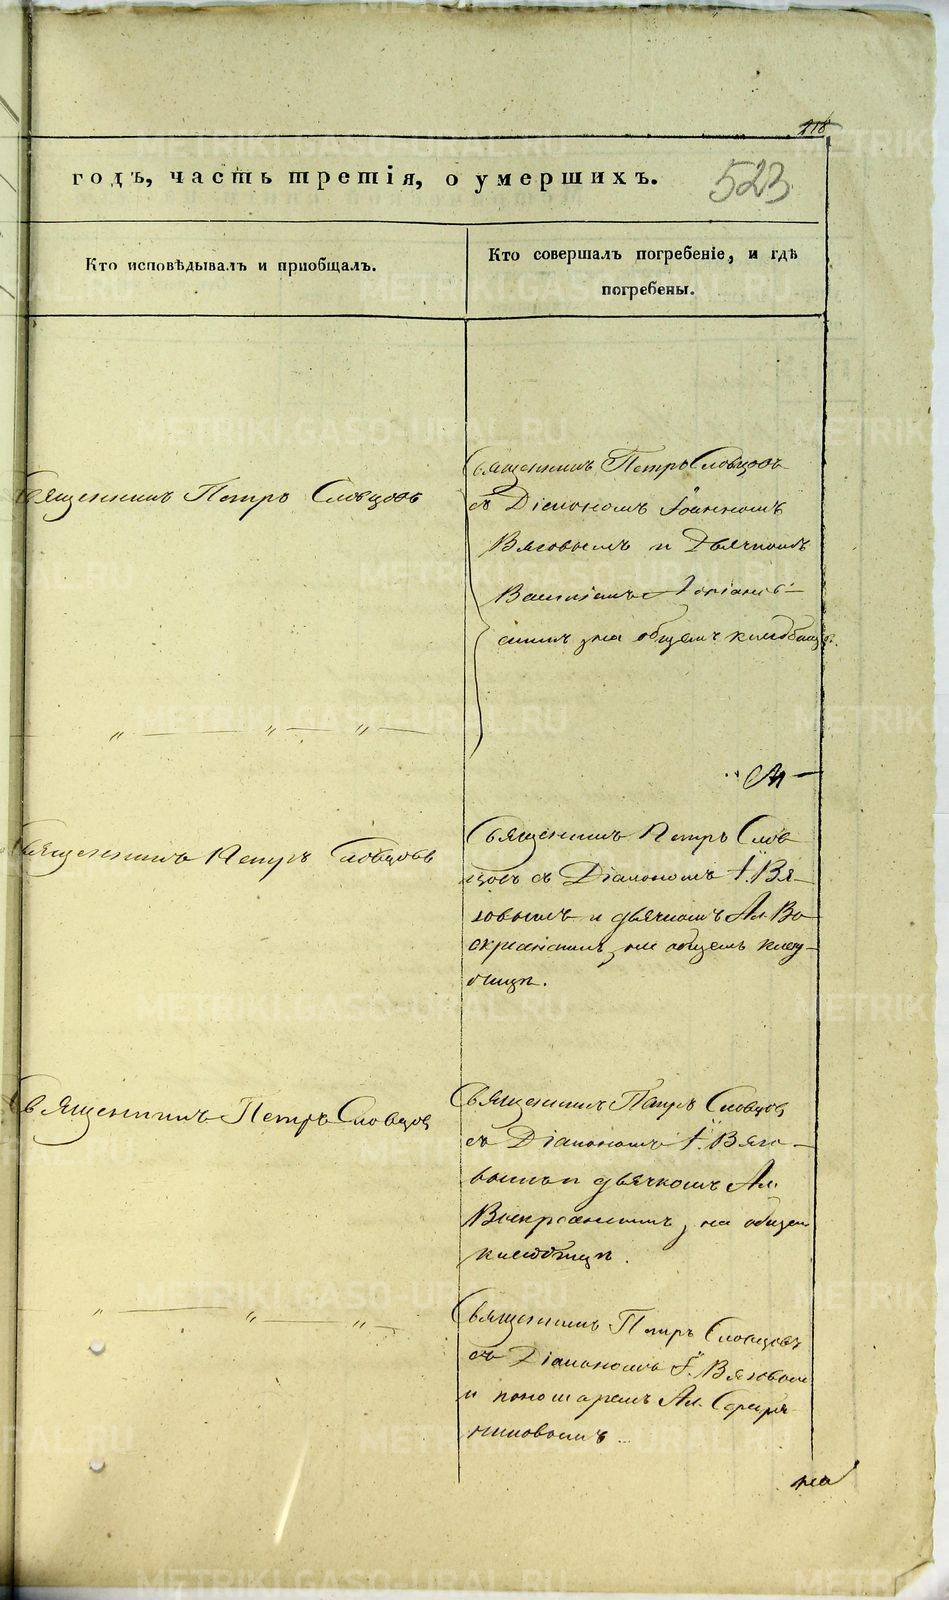 218
523
годъ, часть третія, о умершихъ.
Кто исповѣдывалъ и приобщалъ.
Кто совершалъ погребеніе, и гдѣ
погребены.
Священникъ Петръ Словцовъ
Священникъ Петръ Словцовъ
съ Діакономъ Іоанномъ
Вяговымъ и Дьячкомъ
на общемъ кладбищѣ.
Священникъ Петръ Словцовъ
Священникъ Петръ Слов
цовъ съ Діакономъ І. Вя-
говымъ и дьячкомъ Ал. Во
скресенскимъ, на общемъ клад-
бищѣ.
Священникъ Петръ Словцов
Священникъ Петръ Словцов
съ Діакономъ І. Вяго-
вымъ и дьячкомъ Ал.
Воскресенскимъ, на общем
кладбищѣ.
Священникъ Петръ Словцовъ
съ Діакономъ І. Вяговым
и пономаремъ Ал. Серебря
никовымъ
на
METRIKI.GASO-URAL.RU